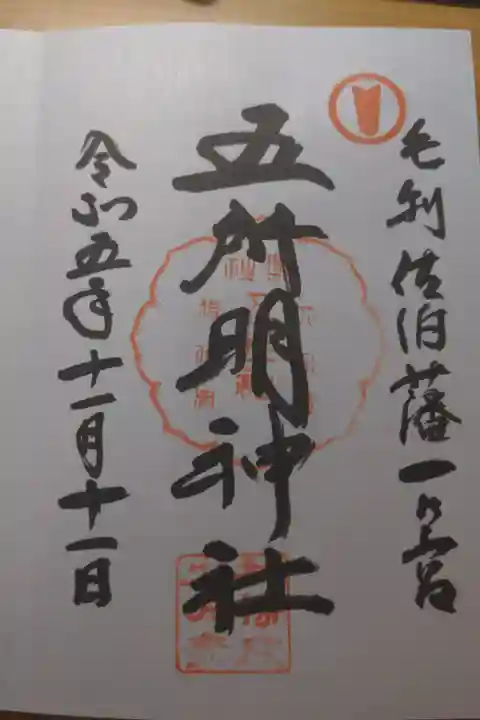 毛利佐伯藩一の宮
五所明神社
令和五年十一月十一日